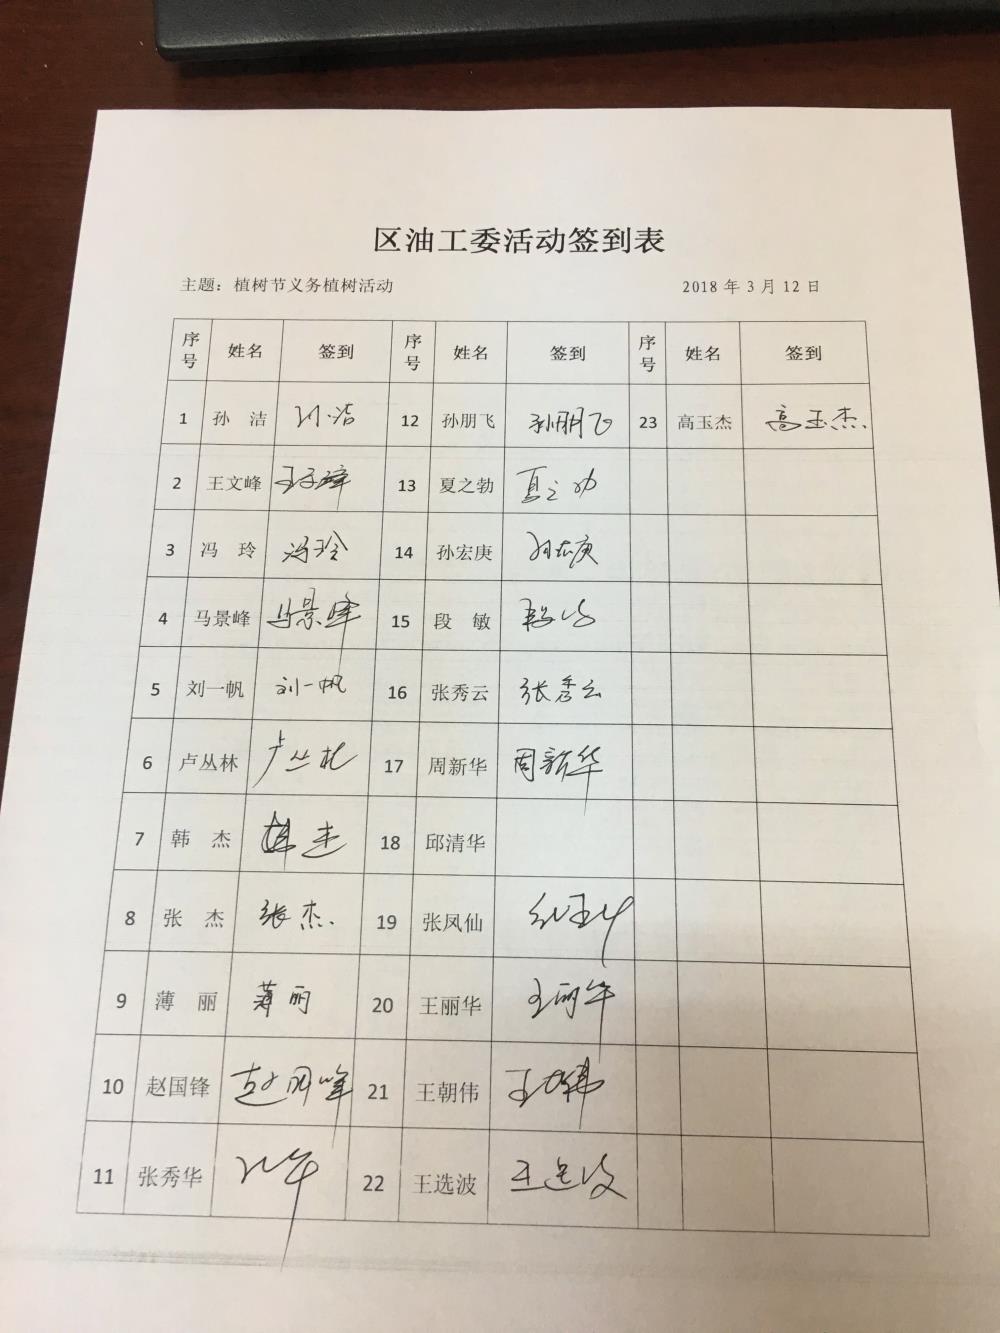 区油工委活动签到表
主题：植树节义务植树活动 2018 年 3 月 12 日
序号 姓名 签到 序号 姓名 签到 序号 姓名 签到
1 孙 洁 孙洁 12 孙朋飞 孙朋飞 23 高玉杰 高玉杰
2 王文峰 王文峰 13 夏之勃 夏之勃
3 冯 玲 冯玲 14 孙宏庚 孙宏庚
4 马景峰 马景峰 15 段 敏 段敏
5 刘一帆 刘一帆 16 张秀云 张秀云
6 卢丛林 卢丛林 17 周新华 周新华
7 韩 杰 韩杰 18 邱清华
8 张 杰 张杰 19 张凤仙
9 薄 丽 薄丽 20 王丽华 王丽华
10 赵国锋 赵国峰 21 王朝伟 王朝伟
11 张秀华 22 王选波 王选波